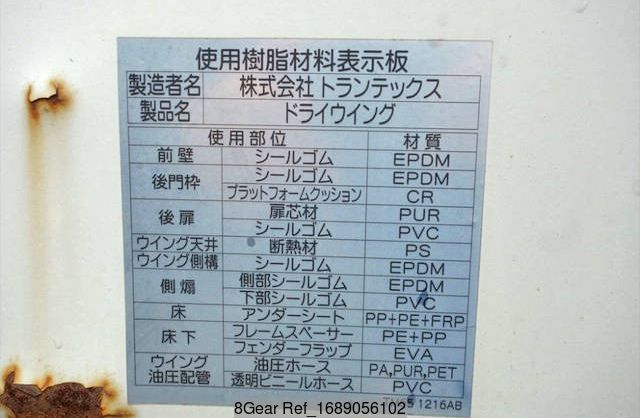 使用樹脂材料表示板
製造者名 株式会社トランテックス
製品名 ドライウイング
使用部位 材質
前壁 シールゴム EPDM
後門枠 シールゴム EPDM
プラットフォームクッション CR
後扉 扉芯材 PUR
シールゴム PVC
ウイング天井 断熱材 PS
ウイング側構 シールゴム EPDM
側煽 側部シールゴム EPDM
下部シールゴム PVC
床 アンダーシート PP+PE+FRP
床下 フレームスペーサー PE+PP
フェンダーフラップ EVA
ウイング油圧配管 油圧ホース PA,PUR,PET
透明ビニールホース PVC
1216AB
8Gear Ref_1689056102